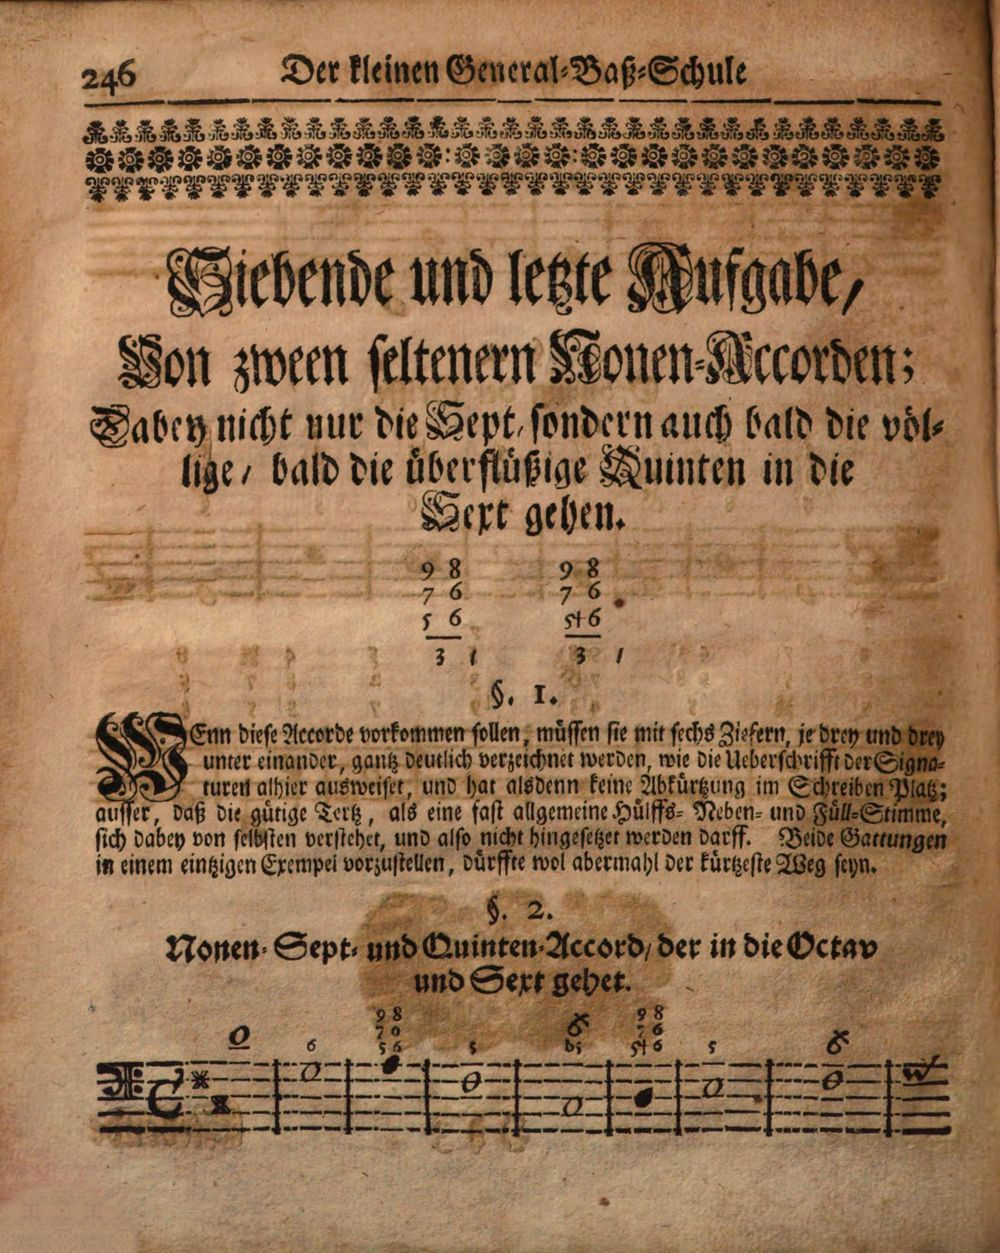 246 Der kleinen General-Baß-Schule
Siebende und letzte Aufgabe,
Von zween seltenern Nonen-Accorden;
Dabey nicht nur die Sept, sondern auch bald die völ-
lige, bald die überflüßige Quinten in die
Sext gehen.
9 8 9 8
7 6 7 6
5 6 5+ 6
3 1 3 1
§. 1.
WEnn diese Accorde vorkommen sollen, müssen sie mit sechs Ziefern, je drey und drey
unter einander, gantz deutlich verzeichnet werden, wie die Ueberschrifft der Signa-
turen alhier ausweiset, und hat alsdenn keine Abkürtzung im Schreiben Platz;
ausser, daß die gütige Tertz, als eine fast allgemeine Hülffs- Neben- und Füll-Stimme,
sich dabey von selbsten verstehet, und also nicht hingesetzet werden darff. Beide Gattungen
in einem eintzigen Exempel vorzustellen, dürffte wol abermahl der kürtzeste Weg seyn.
§. 2.
Nonen- Sept- und Quinten-Accord, der in die Octav
und Sext gehet.
9 8 9 8
7 6 6 7 6
6 5 6 5 b5 5+ 6 5 6